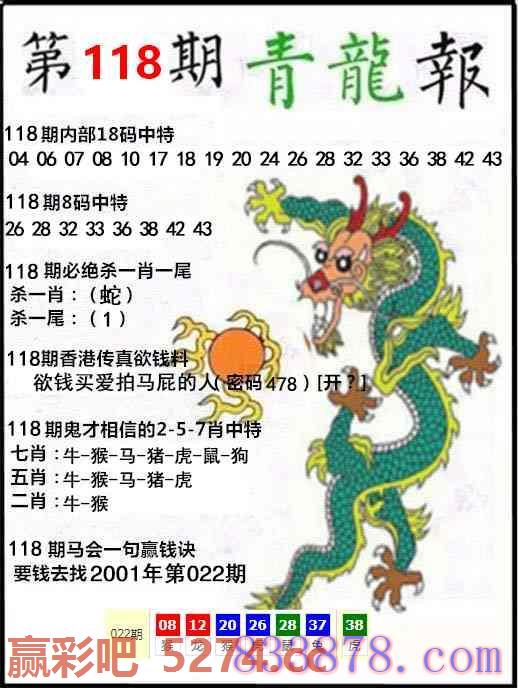 第118期青龍報
118期内部18码中特
04 06 07 08 10 17 18 19 20 24 26 28 32 33 36 38 42 43
118期8码中特
26 28 32 33 36 38 42 43
118期必绝杀一肖一尾
杀一肖:(蛇)
杀一尾:(1)
118期香港传真欲钱料
欲钱买爱拍马屁的人(密码478)[开?]
118期鬼才相信的2-5-7肖中特
七肖:牛-猴-马-猪-虎-鼠-狗
五肖:牛-猴-马-猪-虎
二肖:牛-猴
118期马会一句赢钱诀
要钱去找2001年第022期
022期 08 12 20 26 28 37 38
龙 猴 虎 鼠 兔 虎
赢彩吧 5274.cc
838878.com